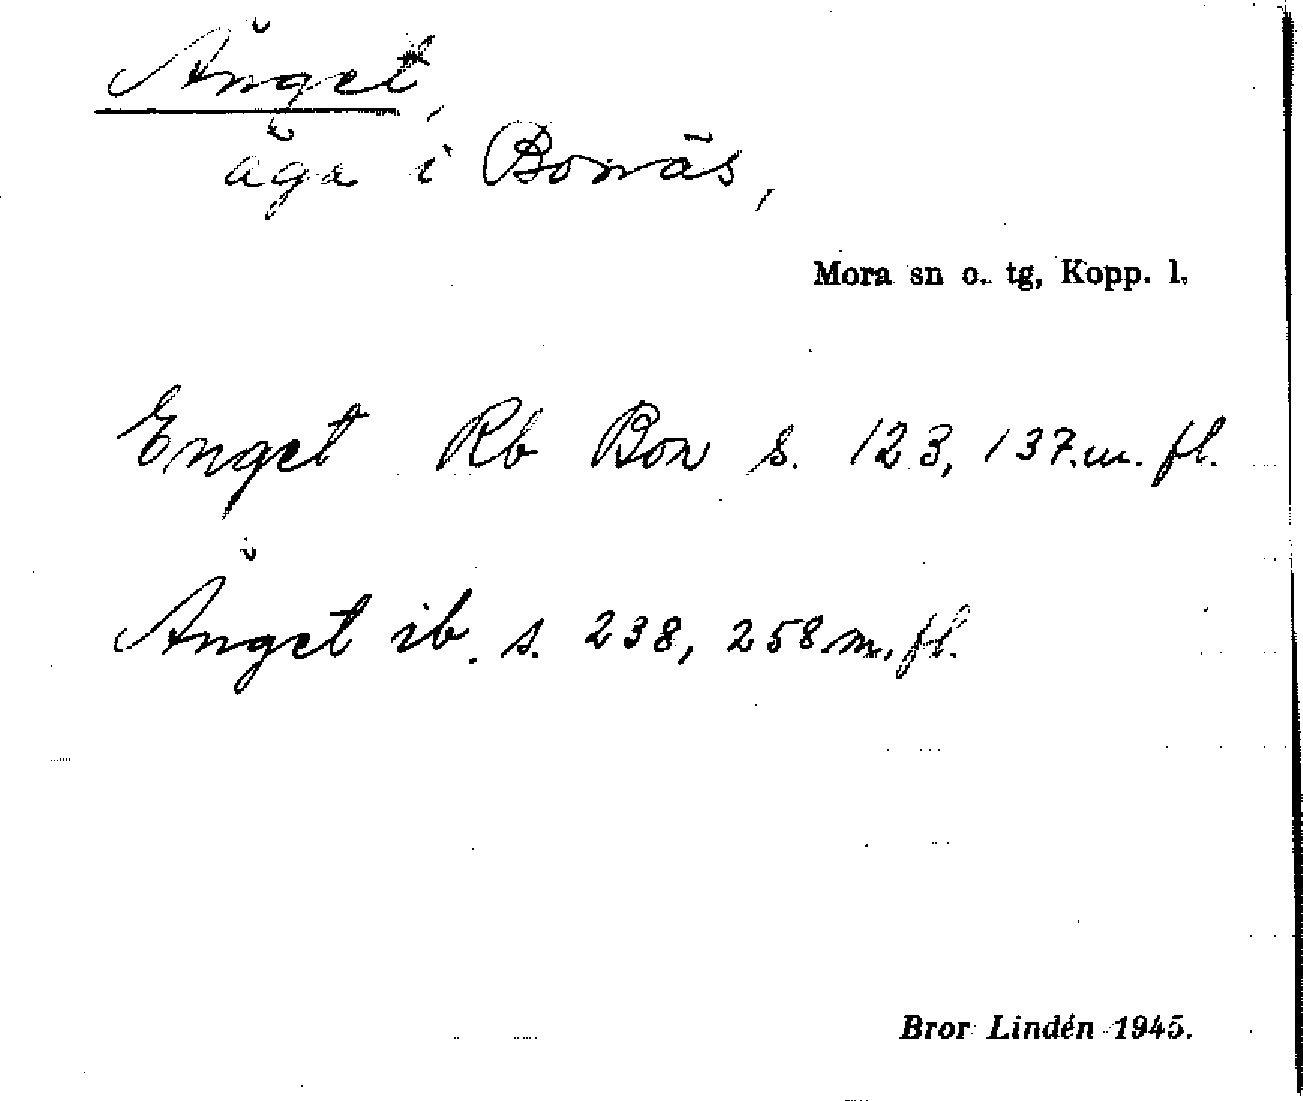 Änget,
äga i Bonäs,
Mora sn o. tg, Kopp. l.
Enget Rb Bon s. 123, 137 m. fl.
Änget ib. s. 238, 258 m. fl.
Bror Lindén 1945.